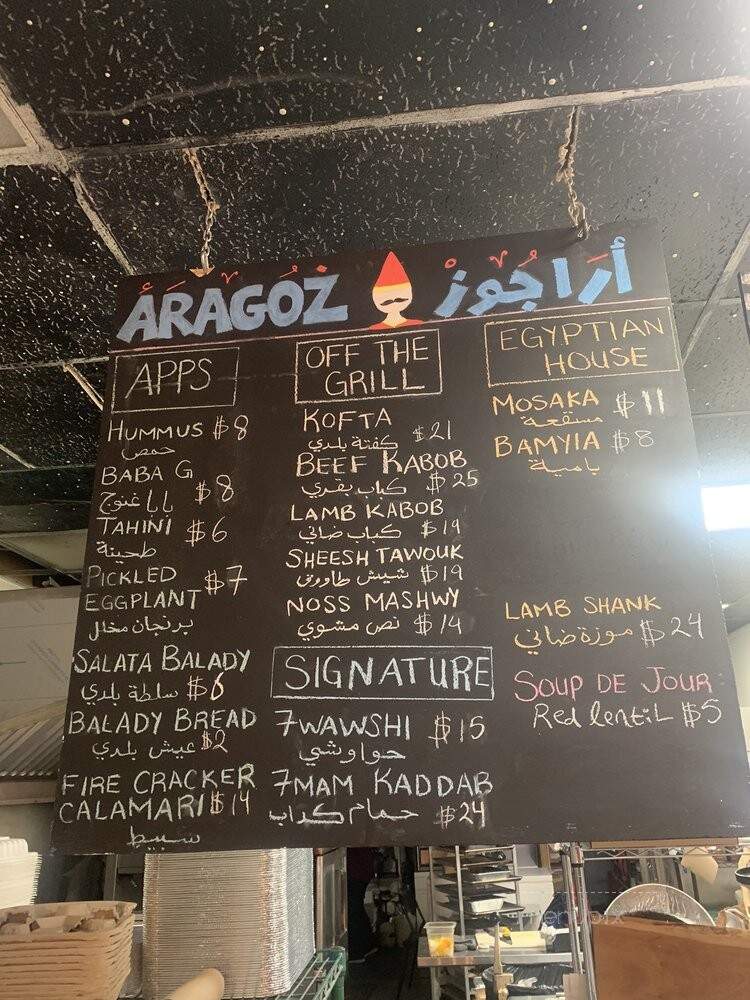 ARAGOZ أراجوز
APPS
HUMMUS $8
حمص
BABA G
بابا غنوج $8
TAHINI $6
طحينة
PICKLED $7
EGGPLANT
برنجان مخلل
SALATA BALADY
سلطة بلدي $6
BALADY BREAD
عيش بلدي $2
FIRE CRACKER
CALAMARI $14
سبيط
OFF THE
GRILL
KOFTA
كفتة بلدي $21
BEEF KABOB
كباب بقري $25
LAMB KABOB
كباب ضاني $19
SHEESH TAWOUK
شيش طاووق $19
NOSS MASHWY
نص مشوي $14
SIGNATURE
7WAWSHI $15
حواوشي
7MAM KADDAB
حمام كداب $24
EGYPTIAN
HOUSE
MOSAKA $11
مسقعة
BAMYIA $8
بامية
LAMB SHANK
موزة ضاني $24
SOUP DE JOUR
Red lentil $5